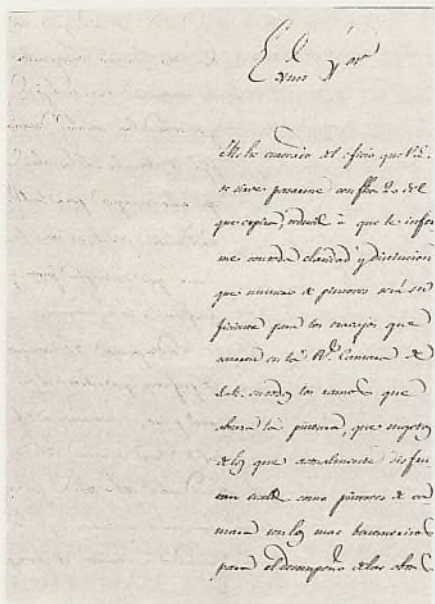 Exmo Sor
Me he enterado del oficio que V.E.
se sirve pasarme con fha 20 del
que espira, reducido a que le infor
me con toda claridad y distincion
que numero de pintores será su
ficiente para los trabajos que
ocurren en la Rl Camara de
S.M. en todos los ramos que
abraza la pintura, que sugetos
de los que actualmente disfru
tan sueldo como pintores de ca
mara son los mas benemeritos
para el desempeño de las obras